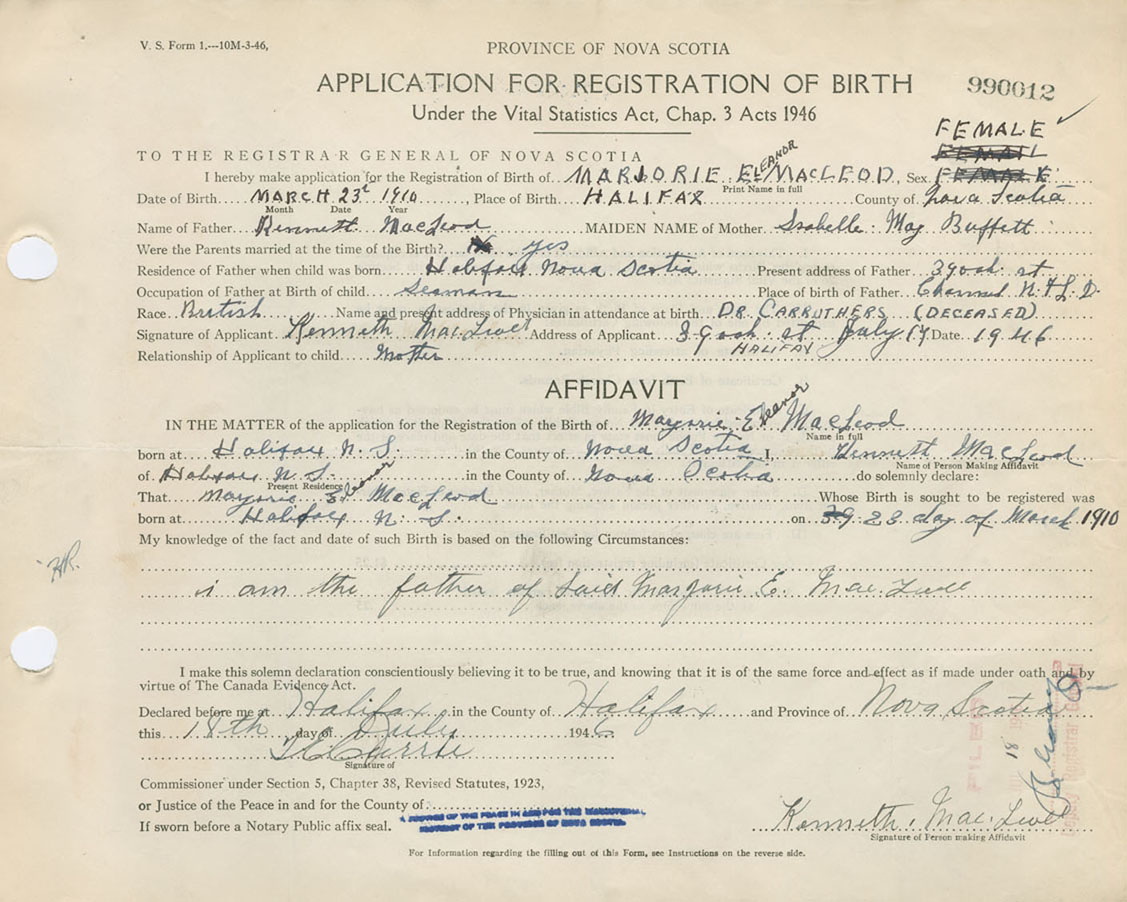 V. S. Form 1.---10M-3-46,
PROVINCE OF NOVA SCOTIA
APPLICATION FOR REGISTRATION OF BIRTH
990012
Under the Vital Statistics Act, Chap. 3 Acts 1946
FEMALE
TO THE REGISTRAR GENERAL OF NOVA SCOTIA
I hereby make application for the Registration of Birth of MARJORIE ELEANOR MACLEOD, Sex FEMALE
Print Name in full
Date of Birth MARCH 23 1910, Place of Birth HALIFAX County of Nova Scotia
Month Date Year
Name of Father Kennett MacLeod MAIDEN NAME of Mother Isabelle May Buffett
Were the Parents married at the time of the Birth? yes
Residence of Father when child was born Halifax Nova Scotia Present address of Father 39 st
Occupation of Father at Birth of child Seaman Place of birth of Father Channel N.F.L.D.
Race British Name and present address of Physician in attendance at birth DR. CARRUTHERS (DECEASED)
Signature of Applicant Kenneth Address of Applicant 39 st July 17 Date 1946
HALIFAX
Relationship of Applicant to child Mother
AFFIDAVIT
IN THE MATTER of the application for the Registration of the Birth of Marjorie Eleanor MacLeod
Name in full
born at Halifax N.S. in the County of Nova Scotia I, Kennett MacLeod
Name of Person Making Affidavit
of Halifax N.S. in the County of Nova Scotia do solemnly declare:
Present Residence
That Marjorie Eleanor MacLeod Whose Birth is sought to be registered was
born at Halifax N. S. on 23 day of March 1910
My knowledge of the fact and date of such Birth is based on the following Circumstances:
HR.
i am the father of Said Marjorie E.
I make this solemn declaration conscientiously believing it to be true, and knowing that it is of the same force and effect as if made under oath and by
virtue of The Canada Evidence Act.
Declared before me at Halifax in the County of Halifax and Province of Nova Scotia
this 18th day of July 1946
Signature of
Commissioner under Section 5, Chapter 38, Revised Statutes, 1923,
or Justice of the Peace in and for the County of
If sworn before a Notary Public affix seal.
FILED
18
Kenneth
Signature of Person making Affidavit
For Information regarding the filling out of this Form, see Instructions on the reverse side.